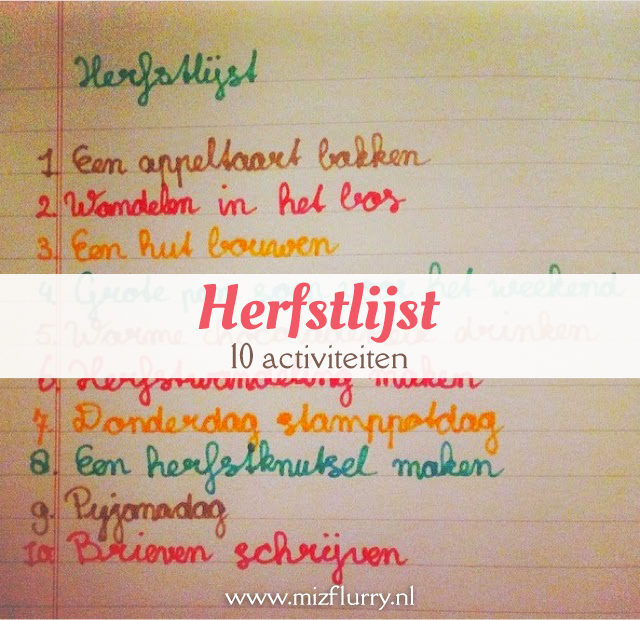 Herfstlijst
1. Een appeltaart bakken
2. Wandelen in het bos
3. Een hut bouwen
4. Grote het weekend
Herfstlijst
5. Warme drinken
10 activiteiten
6. maken
7. Donderdag stamppotdag
8. Een herfstknutsel maken
9. Pyjamadag
10. Brieven schrijven
www.mizflurry.nl